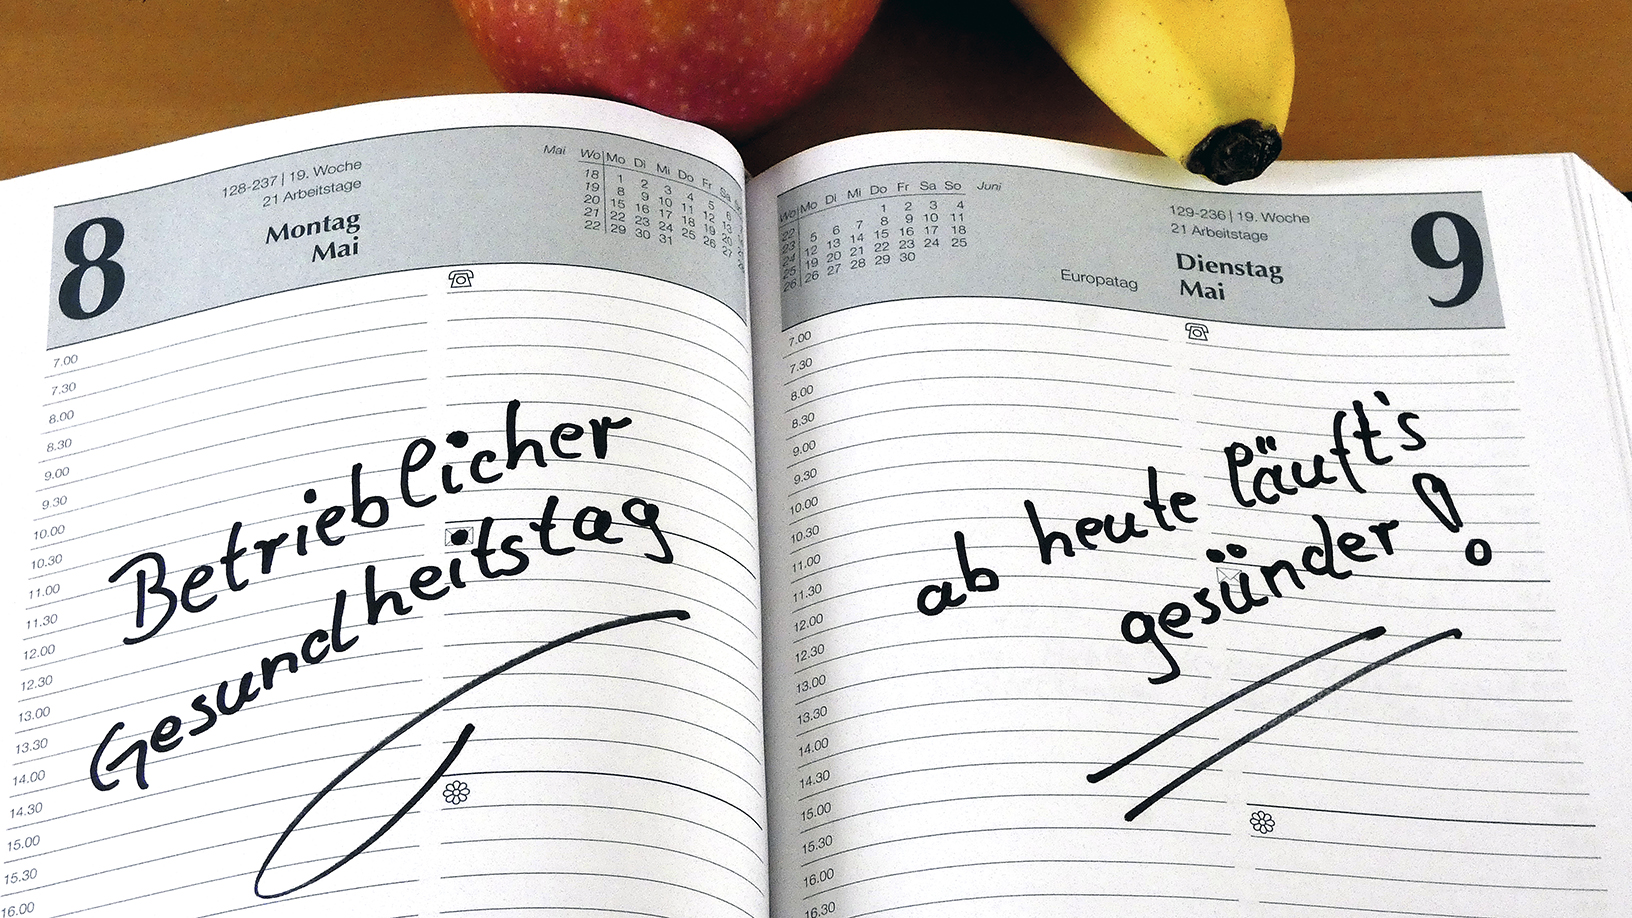 8
128-237 | 19. Woche
21 Arbeitstage
Montag
Mai
Mai Wo Mo Di Mi Do Fr Sa
18 1 2 3 4 5 6
19 8 9 10 11 12 13
20 15 16 17 18 19 20
21 22 23 24 25 26 27
22 29 30 31
7.00
7.30
8.00
8.30
9.00
9.30
10.00
10.30
11.00
11.30
12.00
12.30
13.00
13.30
14.00
14.30
15.00
15.30
16.00
Betrieblicher
Gesundheitstag
Wo Mo Di Mi Do Fr Sa So Juni
22 1 2 3 4
23 5 6 7 8 9 10 11
24 12 13 14 15 16 17 18
25 19 20 21 22 23 24 25
26 26 27 28 29 30
Europatag
129-236 | 19. Woche
21 Arbeitstage
Dienstag
Mai
9
7.00
7.30
8.00
8.30
9.00
9.30
10.00
10.30
11.00
11.30
12.00
12.30
13.00
13.30
14.00
14.30
15.00
15.30
16.00
16.30
ab heute läuft's
gesünder!